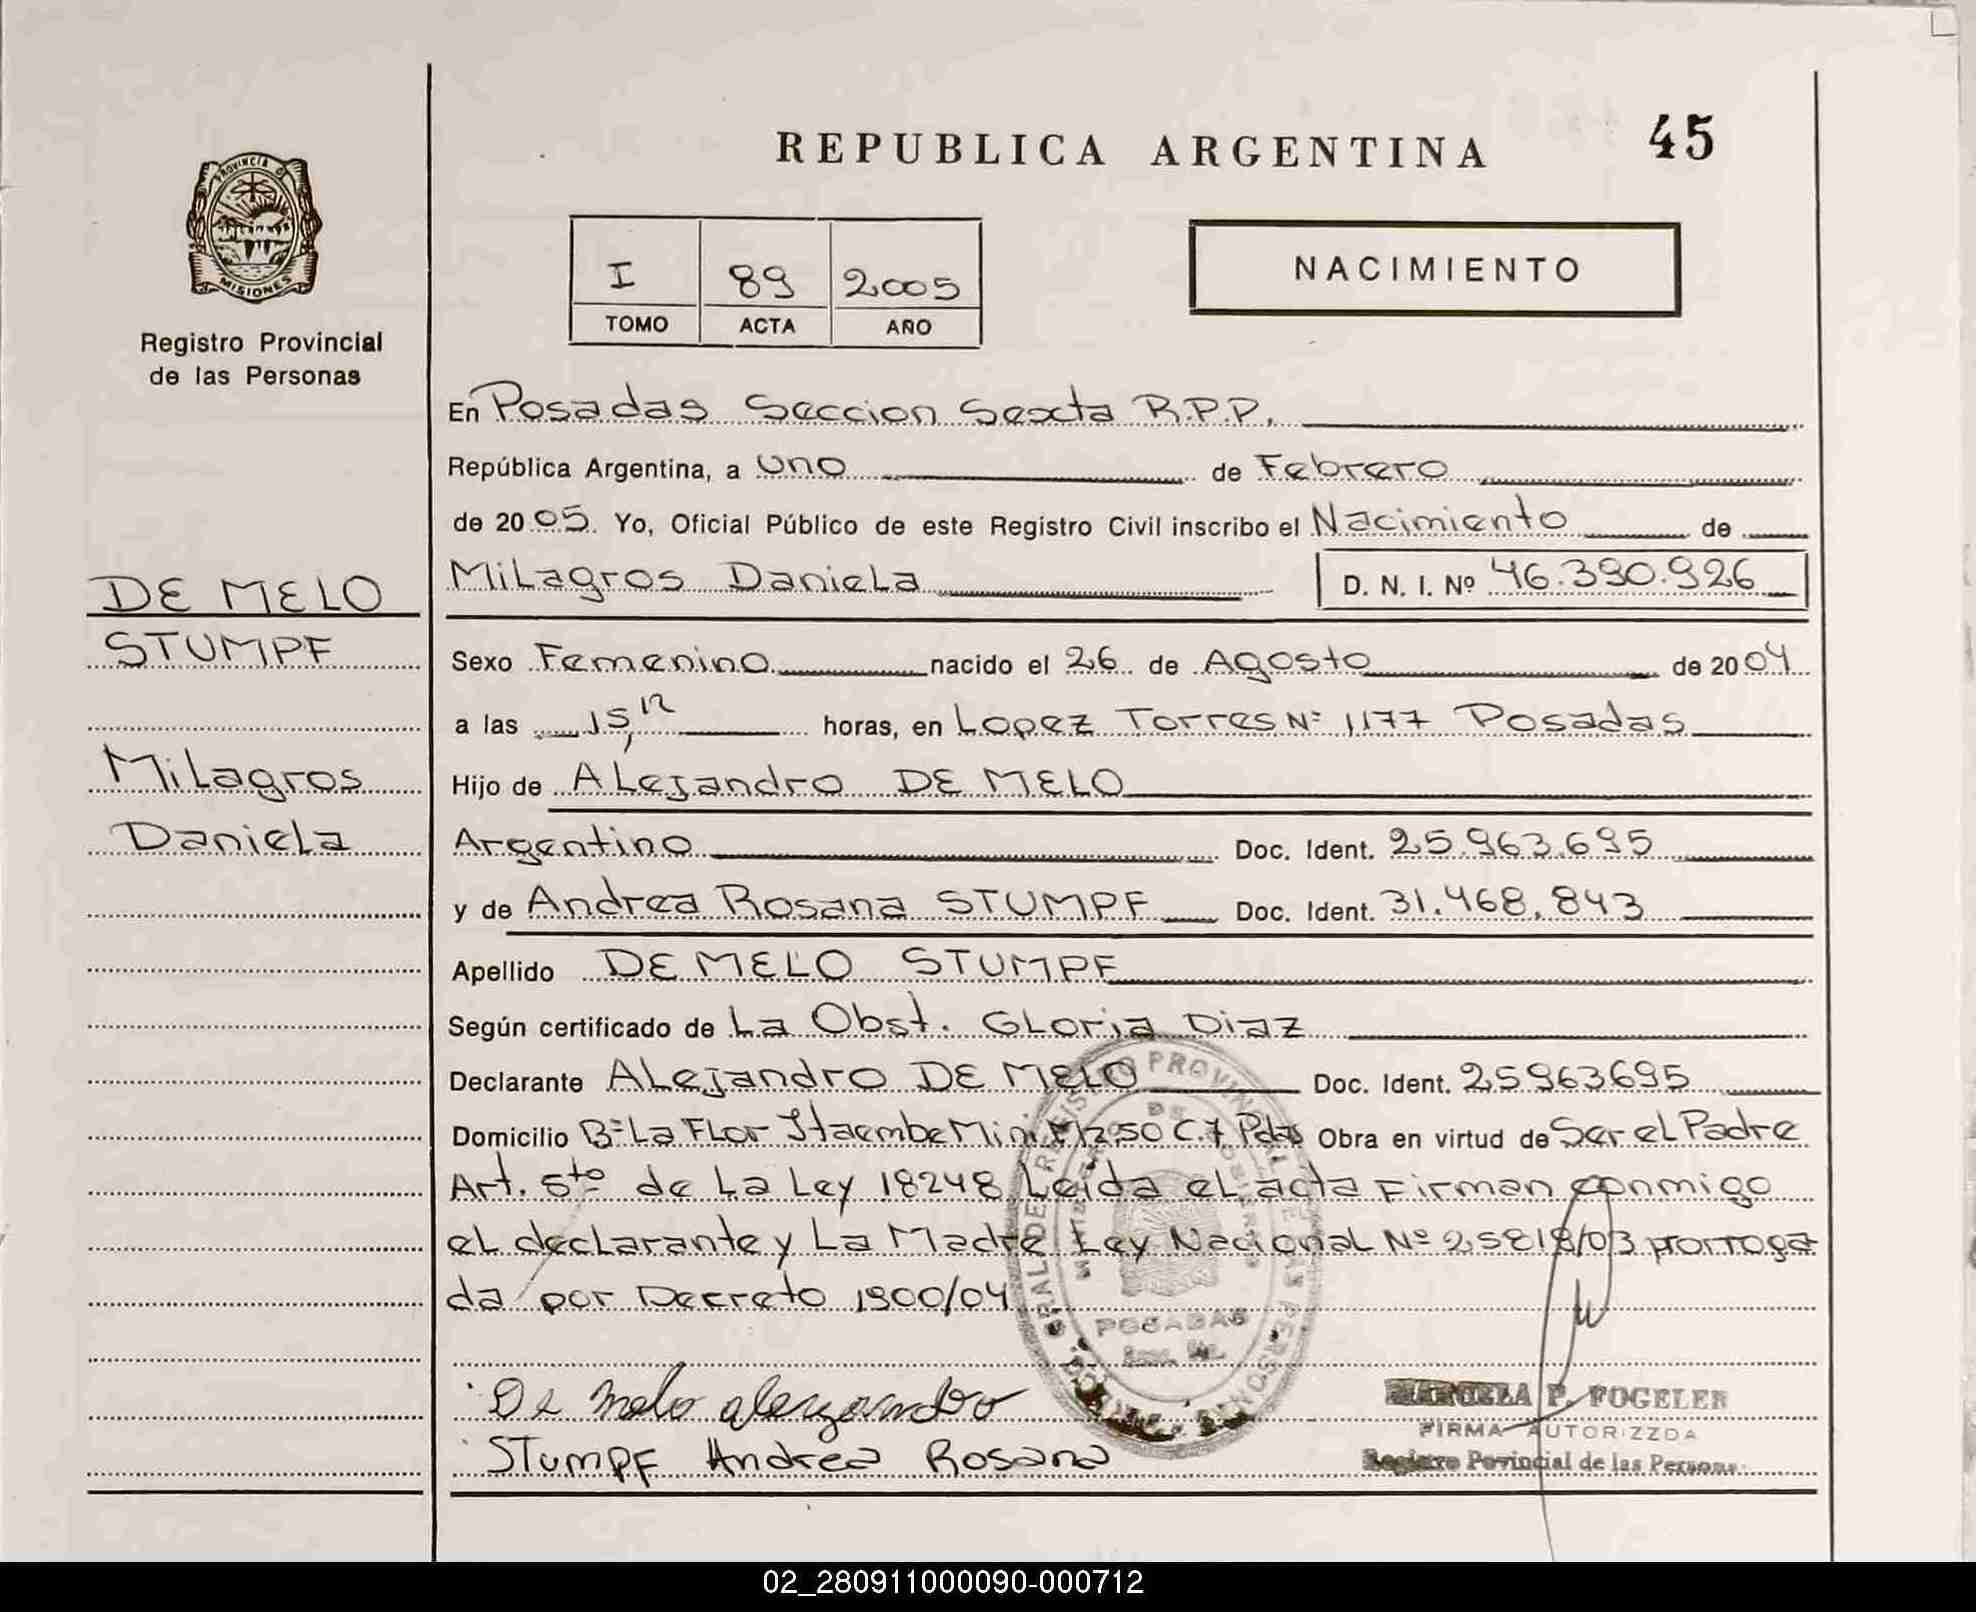 PROVINCIA DE
MISIONES
Registro Provincial
de las Personas
DE MELO
STUMPF
Milagros
Daniela
REPUBLICA ARGENTINA
45
I 89 2005
TOMO ACTA AÑO
NACIMIENTO
En Posadas Seccion Sexta R.P.P.
República Argentina, a uno de Febrero
de 2005. Yo, Oficial Público de este Registro Civil inscribo el Nacimiento de
Milagros Daniela D. N. I. Nº 46.390.926
Sexo Femenino nacido el 26 de Agosto de 2004
a las 15,12 horas, en Lopez Torres Nº 1177 Posadas
Hijo de Alejandro DE MELO
Argentino Doc. Ident. 25.963.695
y de Andrea Rosana STUMPF Doc. Ident. 31.468.843
Apellido DE MELO STUMPF
Según certificado de La Obst. Gloria Diaz
Declarante Alejandro DE MELO Doc. Ident. 25963695
Domicilio Bº La Flor Itaembe Mini Mz 50 C.7 Pdas Obra en virtud de Ser el Padre
Art. 5to de La Ley 18248 Leída el acta Firman conmigo
el declarante y La Madre Ley Nacional Nº 25819/03 prorroga
da por Decreto 1900/04
De melo alejandro
STUMPF Andrea Rosana
POSADAS
MARCELA P. FOGELER
FIRMA AUTORIZZDA
Registro Povincial de las Persona
02_280911000090-000712